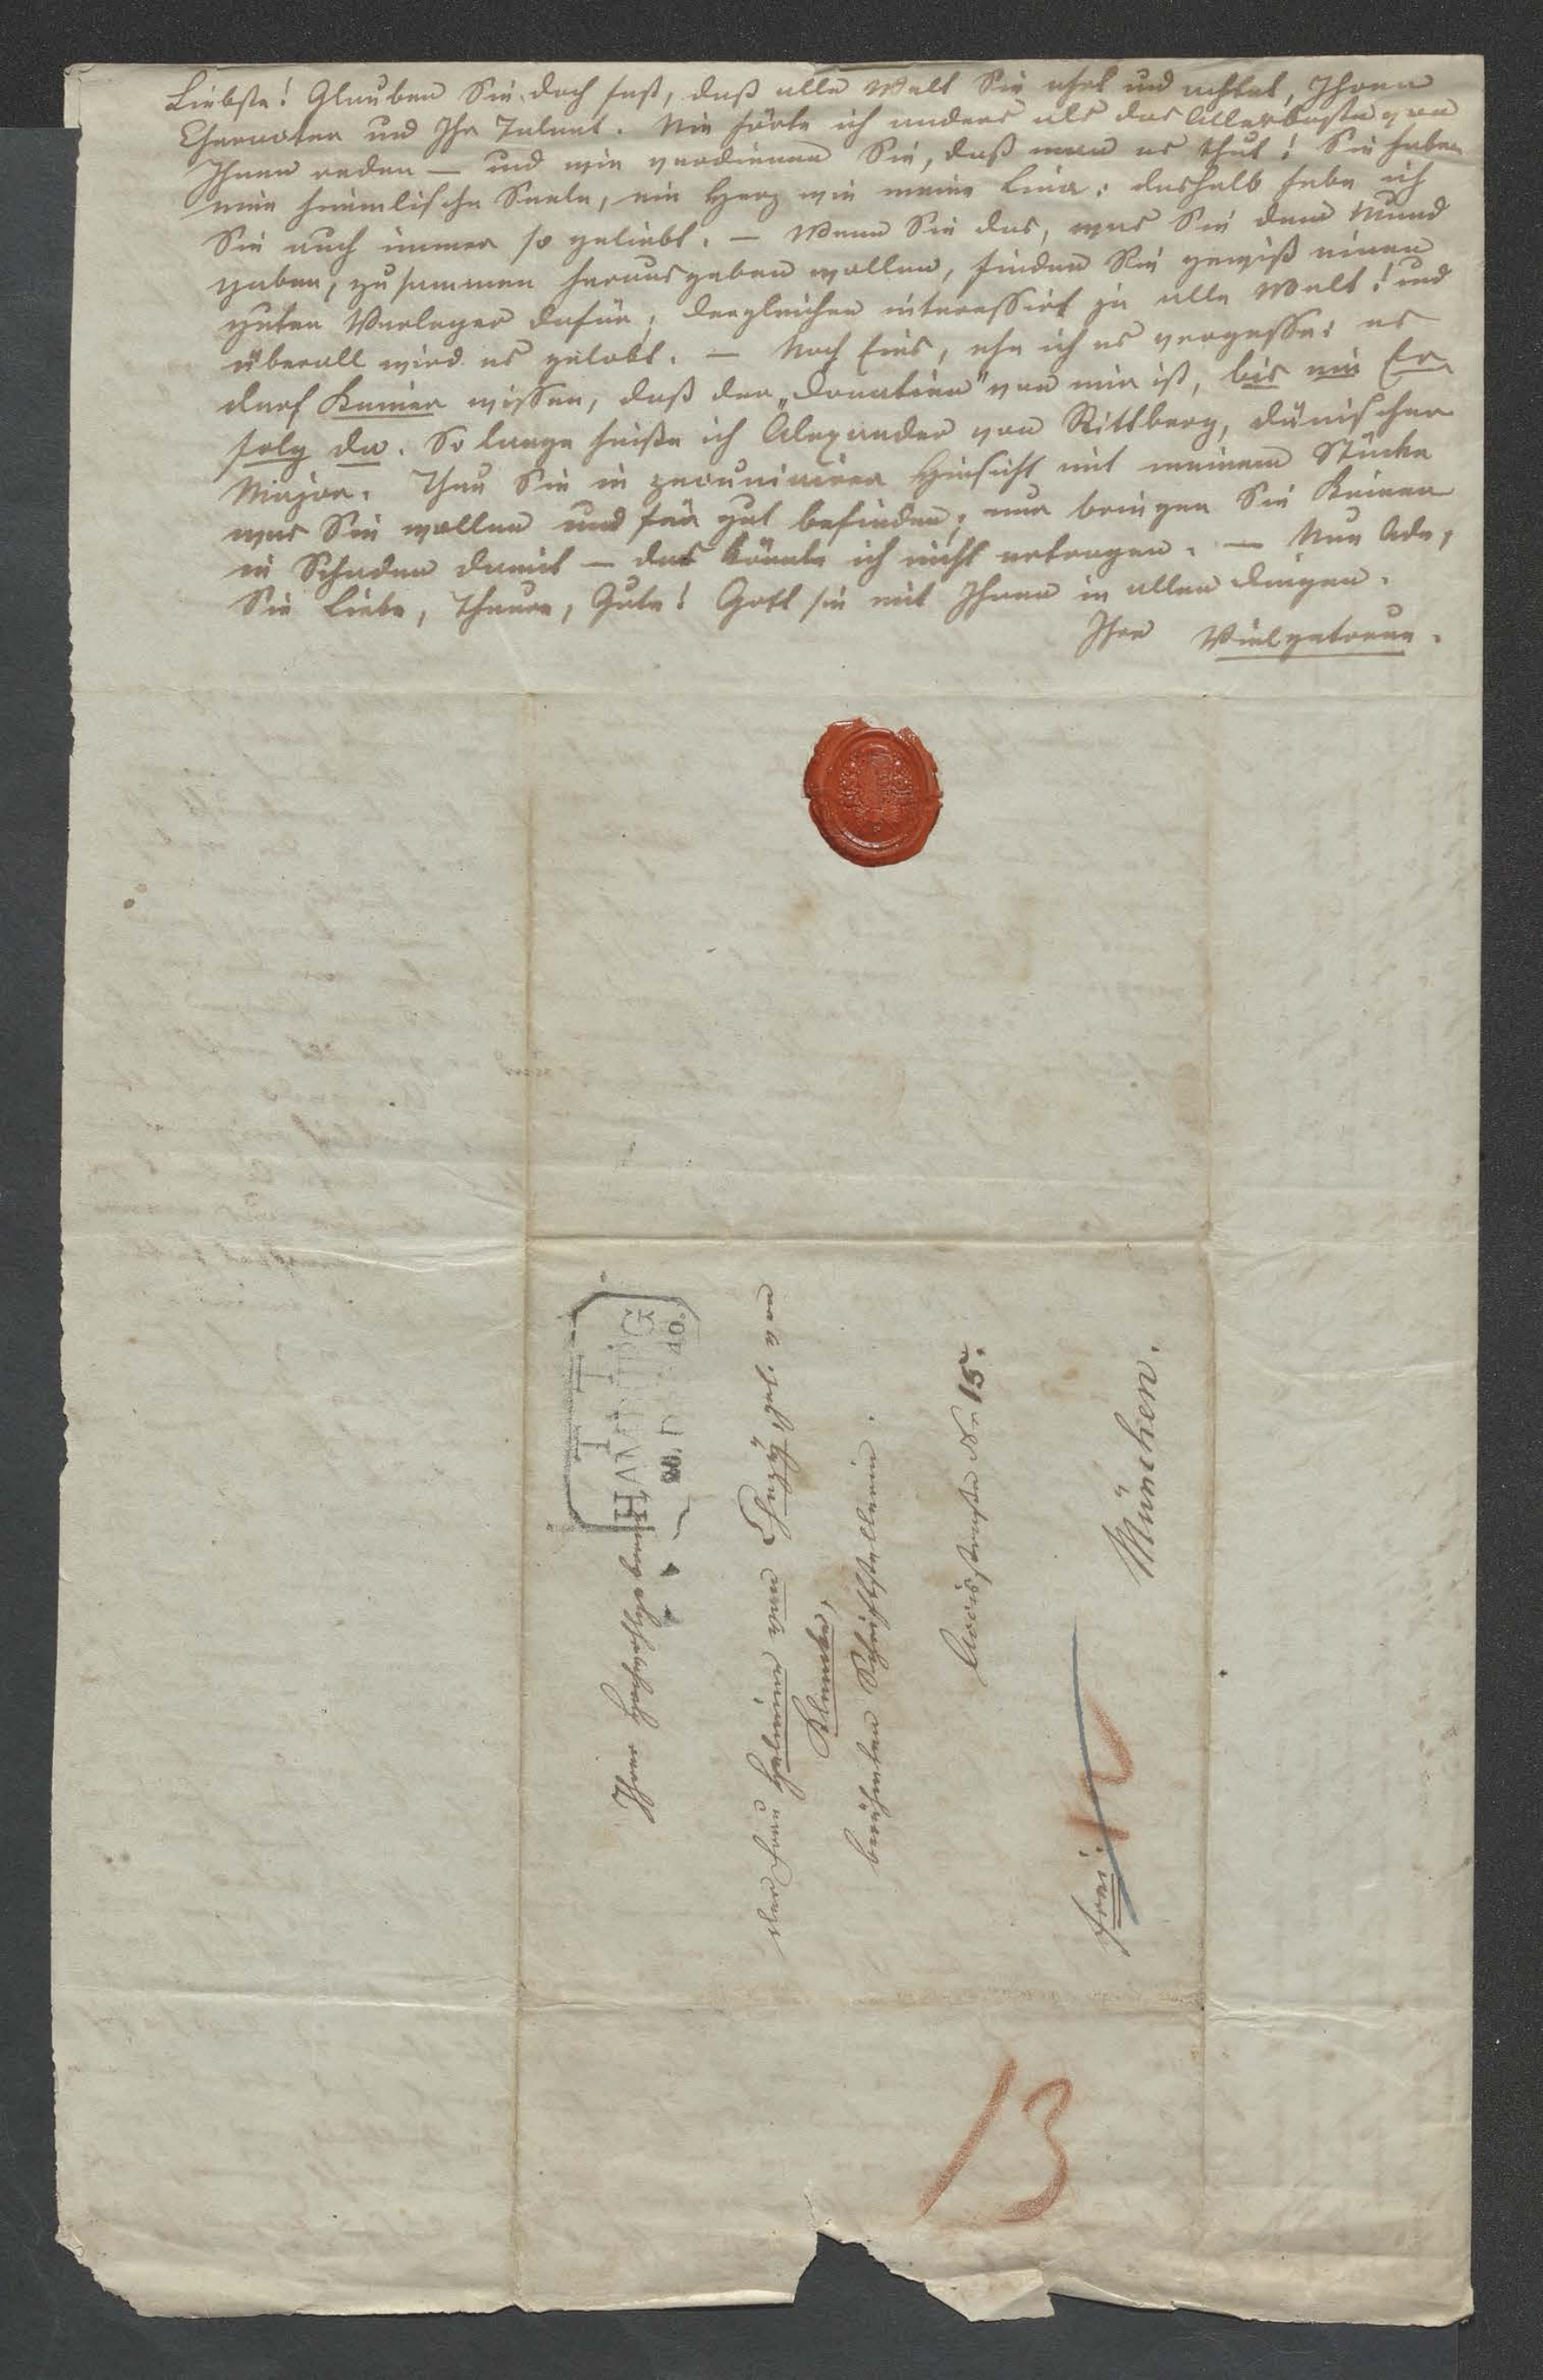 Liebste! Glauben Sie doch fest, daß alle Welt Sie ehrt und achtet, Ihren
Charakter und Ihr Talent. Nie hörte ich anders als das Allerbeste von
Ihnen reden — und wie verdienen Sie, daß man es thut! Sie haben
eine himmlische Seele, ein Herz wie meine Lina: deshalb habe ich
Sie auch immer so geliebt. — Wenn Sie das, was Sie dem Mund
gaben, zusammen herausgeben wollen, finden Sie gewiß einen
guten Verleger dafür; dergleichen interessirt ja alle Welt! und
überall wird es gelobt. — Noch Eins, ehe ich es vergesse: es
darf Keiner wissen, daß der „Donatien" von mir ist, bis ein Er-
folg da. So lange heiße ich Alexander von Rittberg, dänischer
Major. Thun Sie in pecuniairer Hinsicht mit meinem Stücke
was Sie wollen und für gut befinden; nur bringen Sie Keinen
in Schaden damit — das könnte ich nicht ertragen. — Nun Ade,
Sie Liebe, Theure, Gute! Gott sei mit Ihnen in allen Dingen.
Ihre Vielgetreue.
HAMBURG
40.
Ihrer Hochwohlgeboren
der Frau Helmina von Chezÿ, geb. von
Klencke,
berühmten Schriftstellerin.
Arcisstraße Nr 15.
München.
frei.
13